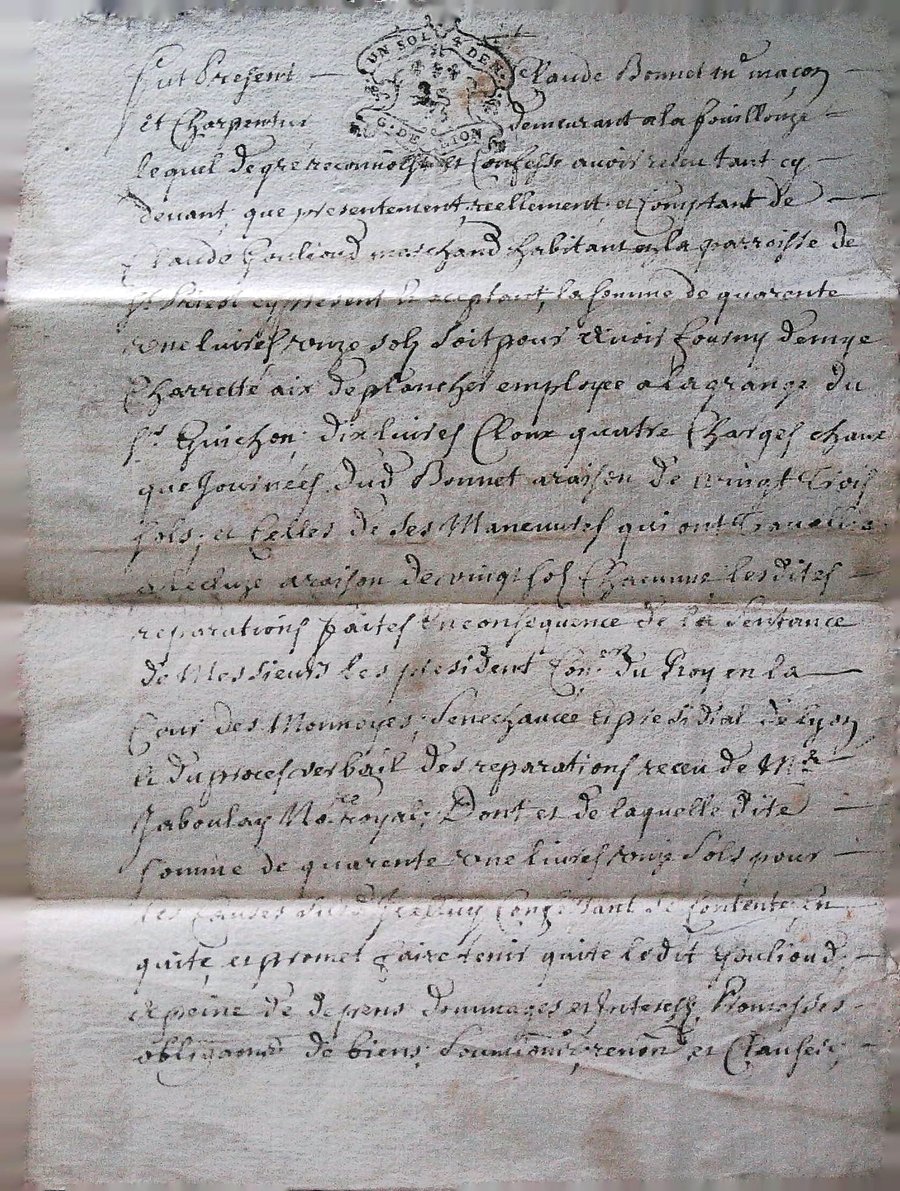 UN SOL 4 DEN.
G. DE LION
Fut Present Claude Bonnet me maçon
et Charpentier demeurant a la fouillouze
lequel de gré reconnoist et Confesse avoir receu tant cy
devant que presentement reellement et Comptant de
Claude Gouliond marchand habitant en la parroisse de
St Priest cy present et acceptant, la somme de quarente
une livres onze sols soit pour avoir fourny demye
Charretté aix de plancher employé a la grange du
sr Guichon, dix livres Cloux quatre Charges chaux
que Journées dud Bonnet a raison de vingt trois
sols, et Celles de ses Maneuvres qui ont travaillés
a raison de vingt sols Chacunne lesdites
reparations faites En consequence de la Sentance
de Messieurs les president Conrs du Roy en la
Cour des Monnoyes, Senechaucée et presidial de Lyon
et du proces verbail des reparations receu de Me
Jaboulay Nore royal, Dont et de laquelle dite
somme de quarente une livres onze sols pour
les Causes susd Iceluy se Contente, En
quite, et promet faire tenir quite ledit Gouliond,
a peine de depens dommages et Interests, Promesses
obligaons de biens, soumissions, renons et Clauses,